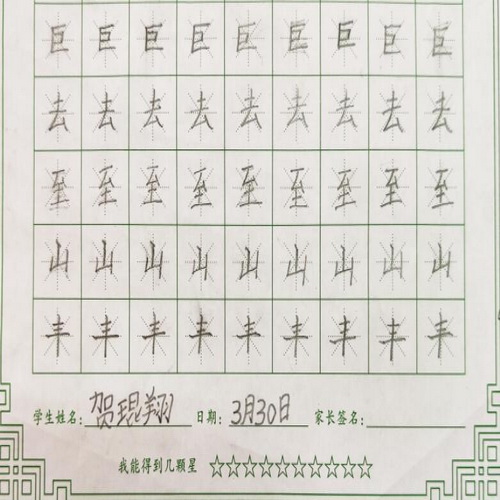 巨巨巨巨巨巨巨巨巨
去去去去去去去去去
至至至至至至至至至
山山山山山山山山山
丰丰丰丰丰丰丰丰丰
学生姓名：贺琨翔 日期：3月30日 家长签名：
我能得到几颗星 ☆☆☆☆☆☆☆☆☆☆